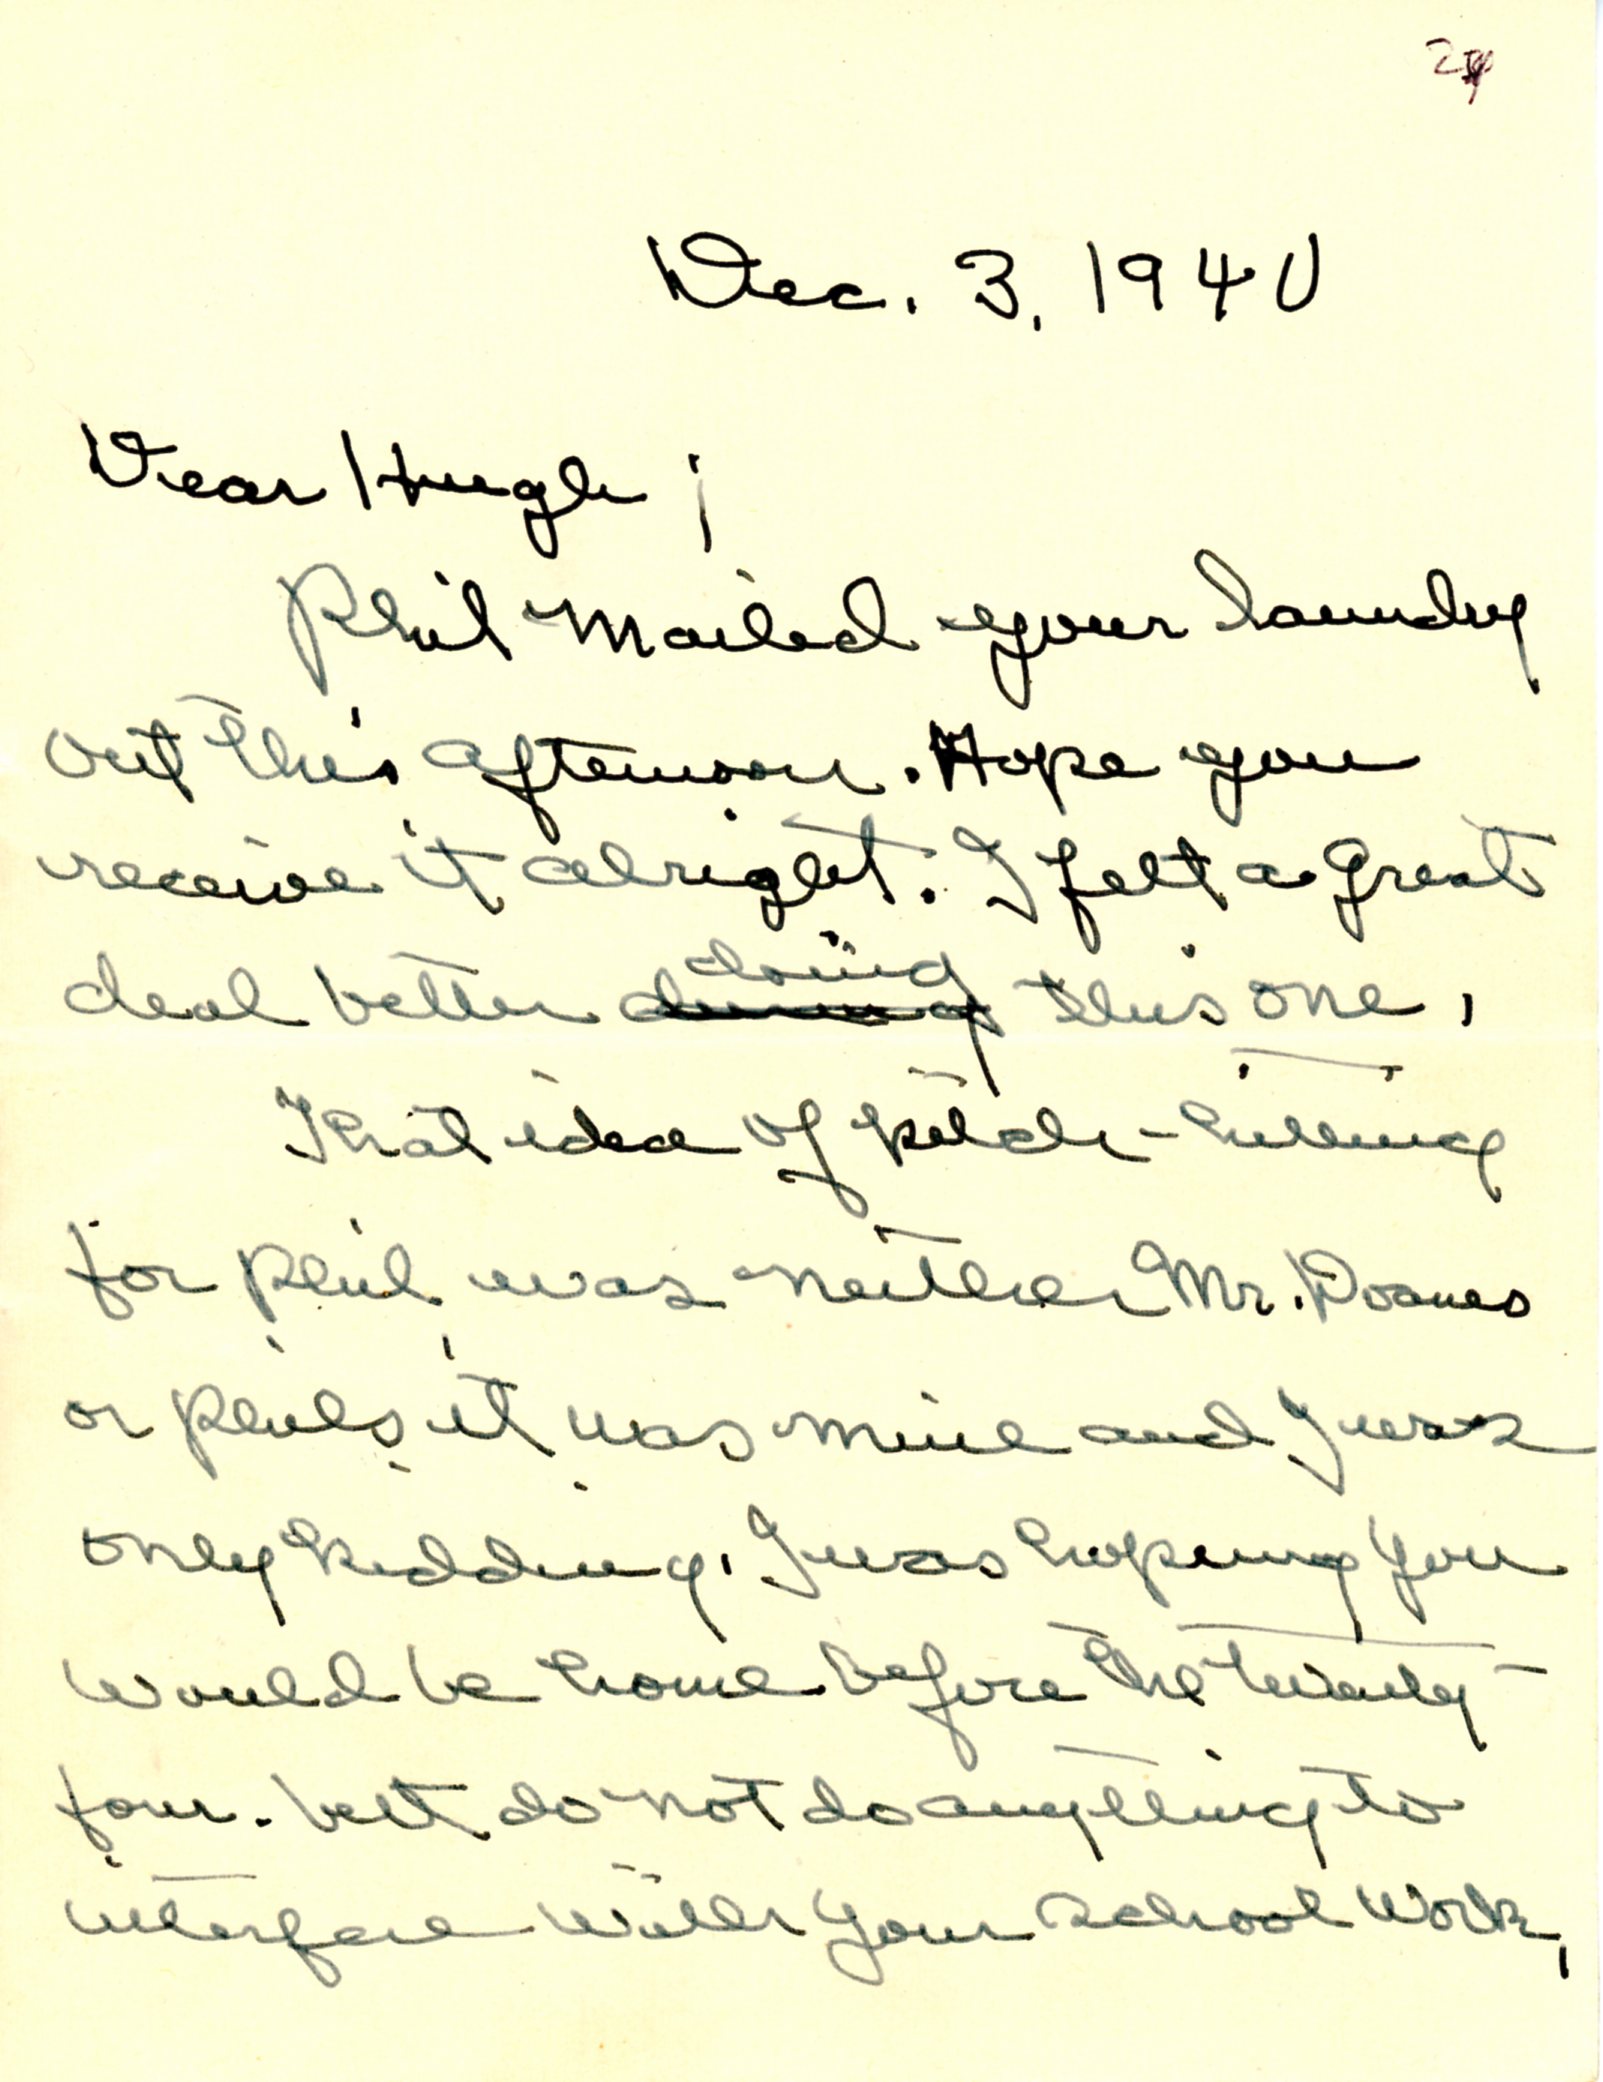 Dec. 3, 1940
Dear Hugh;
Phil mailed your laundry
out this afternoon. Hope you
receive it alright. I felt a great
deal better doing this one.
That idea of pitch-hitting
for Phil was neither Mr. Doanes
or Phils it was mine and I was
only kidding. I was hoping you
would be home before the twenty-
four. but do not do anything to
interfere with your school work,